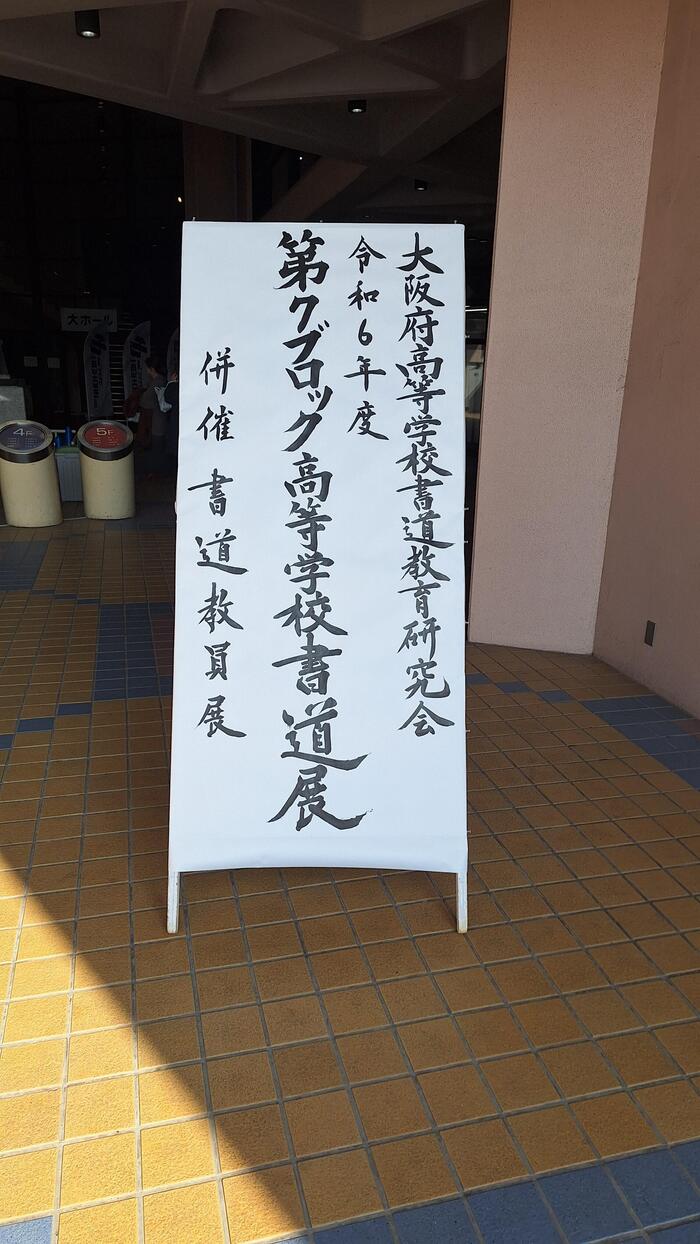 大阪府高等学校書道教育研究会
令和6年度
第7ブロック高等学校書道展
併催 書道教員展
大ホール
4F
5F